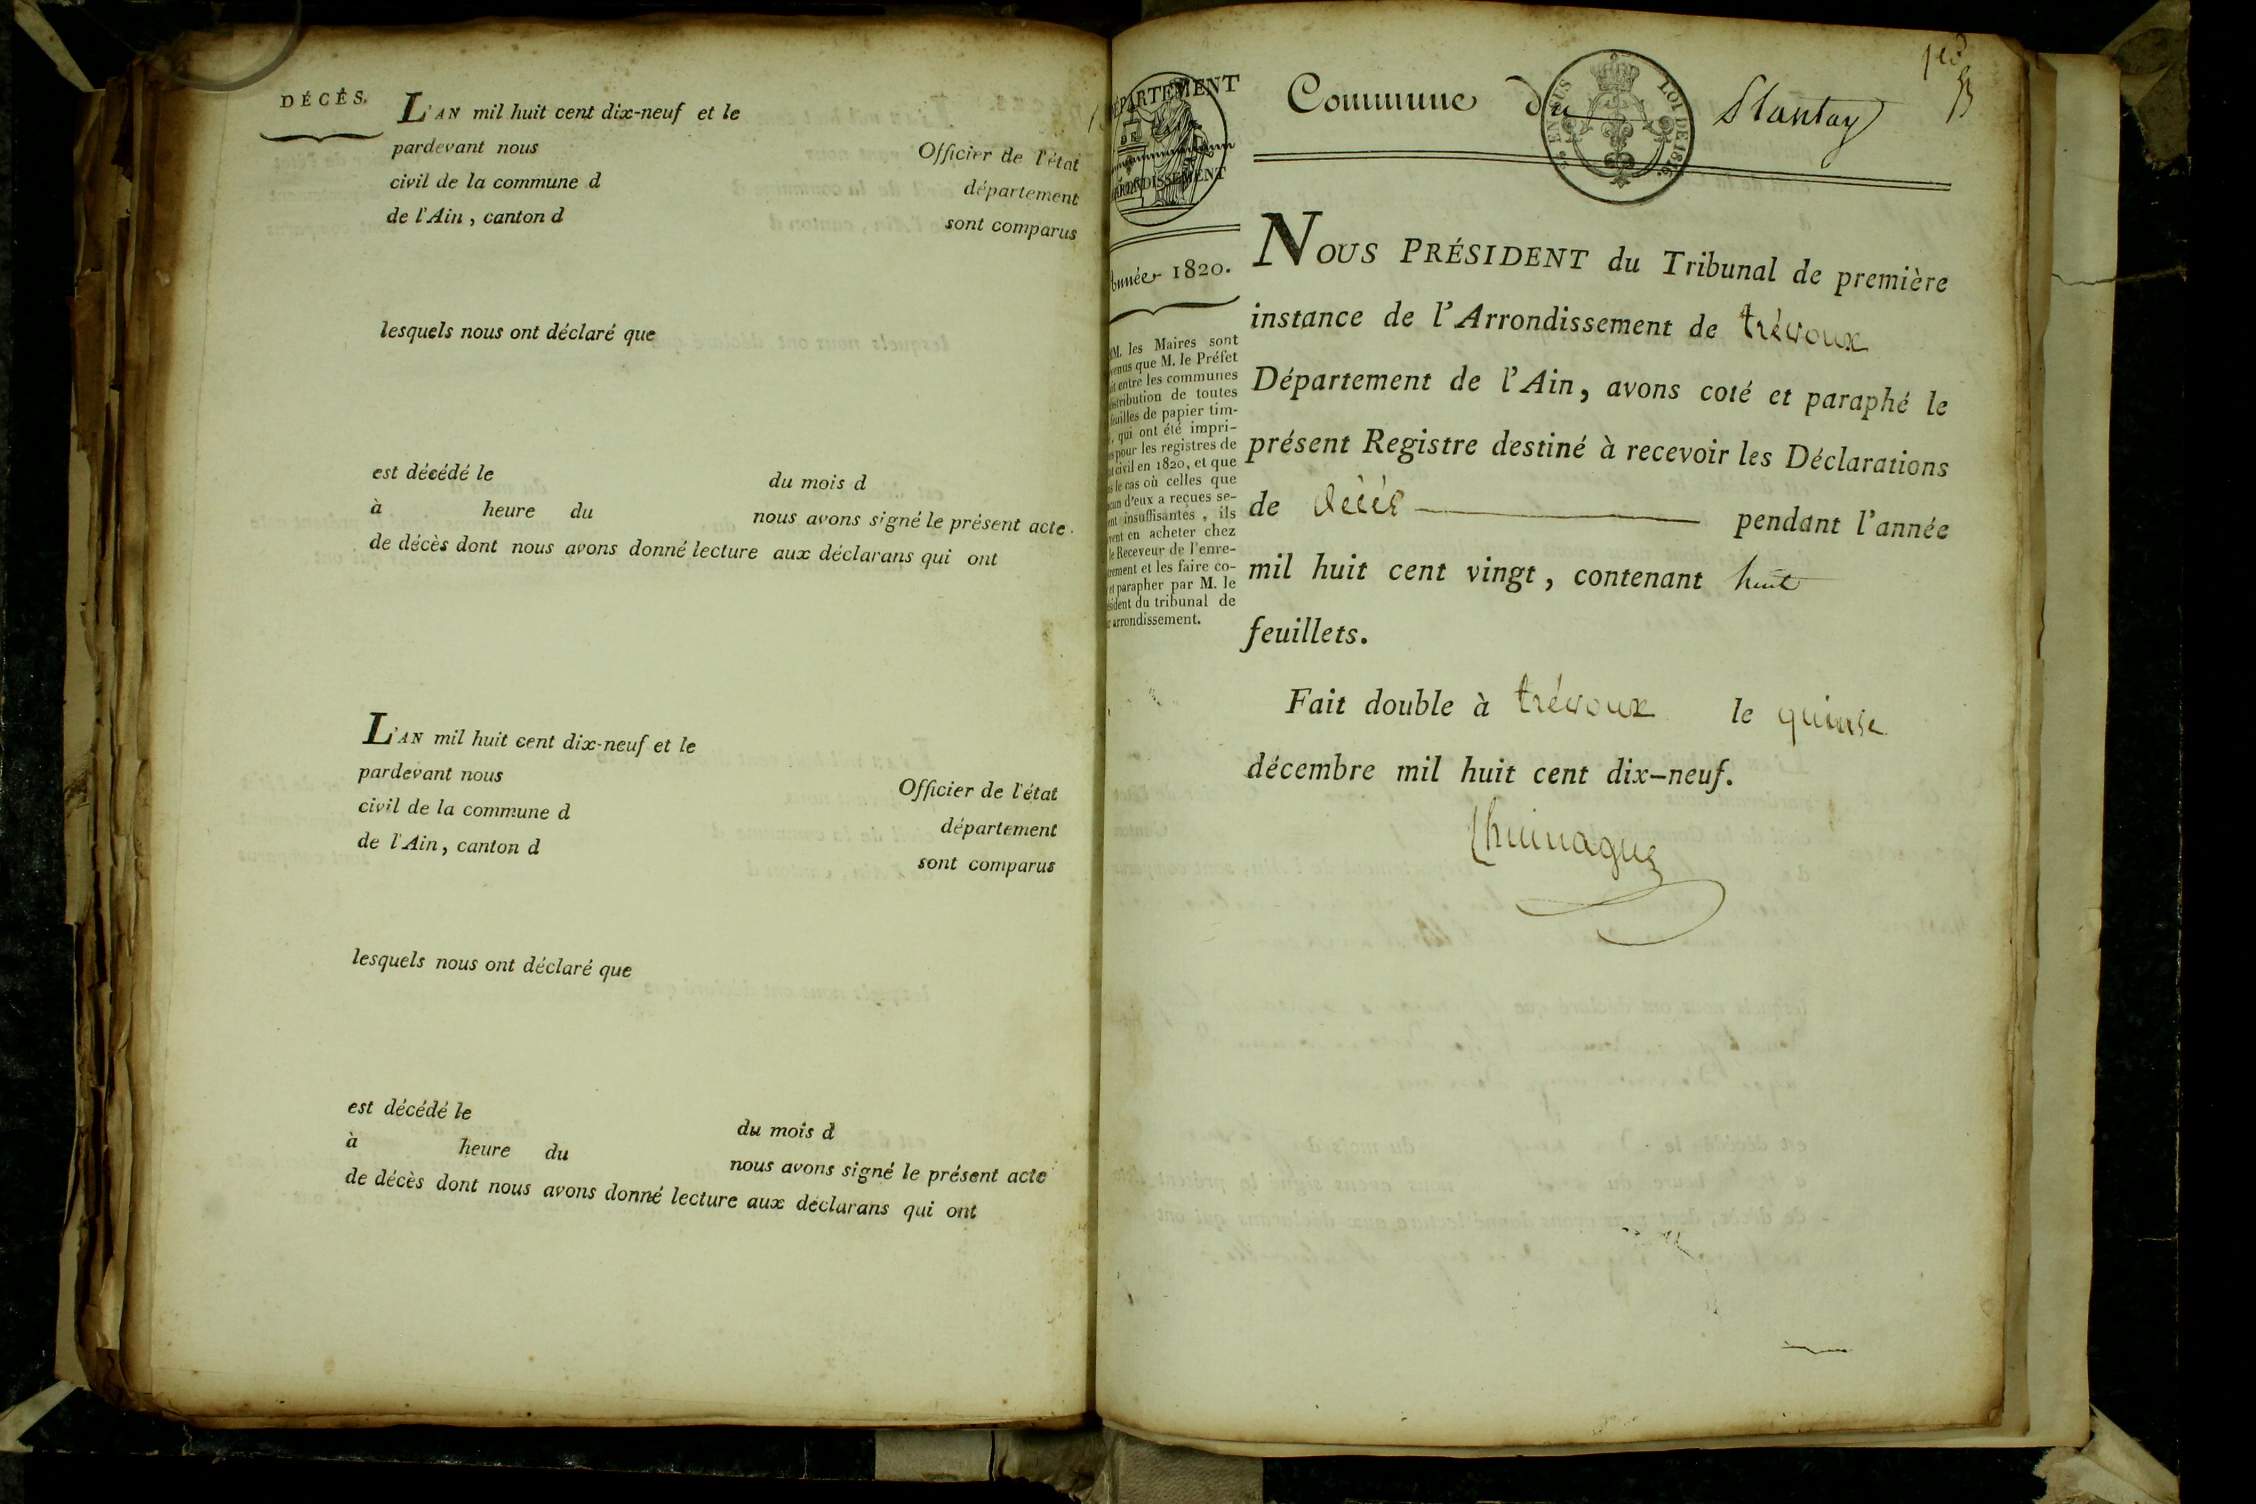 DÉCÈS.
L'AN mil huit cent dix-neuf et le
pardevant nous Officier de l'état
civil de la commune d département
de l'Ain, canton d sont comparus
lesquels nous ont déclaré que
est décédé le du mois d
à heure du nous avons signé le présent acte
de décès dont nous avons donné lecture aux déclarans qui ont
L'AN mil huit cent dix-neuf et le
pardevant nous Officier de l'état
civil de la commune d département
de l'Ain, canton d sont comparus
lesquels nous ont déclaré que
est décédé le du mois d
à heure du nous avons signé le présent acte
de décès dont nous avons donné lecture aux déclarans qui ont
DÉPARTEMENT
ARRONDISSEMENT
Année 1820.
MM. les Maires sont
que M. le Préfet
entre les communes
de toutes
feuilles de papier tim-
, qui ont été impri-
pour les registres de
civil en 1820, et que
le cas où celles que
d'eux a reçues se-
insuffisantes, ils
en acheter chez
le Receveur de l'enre-
et les faire co-
et parapher par M. le
du tribunal de
arrondissement.
Commune de
EN SUS
LOI DE 1816.
NOUS PRÉSIDENT du Tribunal de première
instance de l'Arrondissement de trévoux
Département de l'Ain, avons coté et paraphé le
présent Registre destiné à recevoir les Déclarations
de décès pendant l'année
mil huit cent vingt, contenant huit
feuillets.
Fait double à trévoux le quinse
décembre mil huit cent dix-neuf.